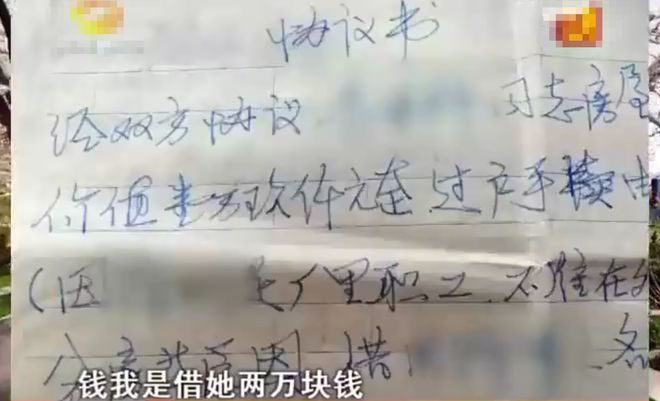 协议书
经双方协议 同志房屋
价值壹万玖仟元整 过户手续由
(因 厂里职工 不准在
原因 借 名
钱我是借她两万块钱